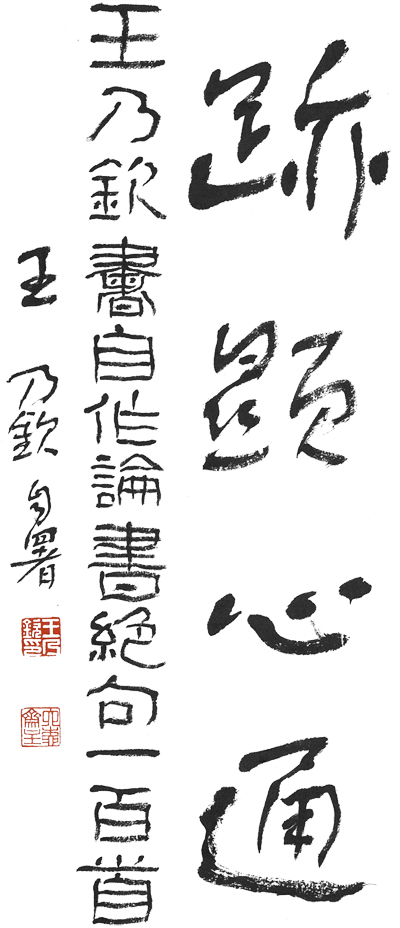 跡顯心通
王乃欽書自作論書絕句一百首
王乃欽自署
王乃欽印